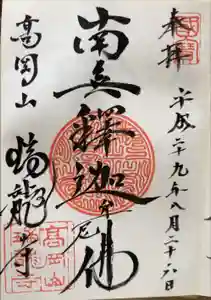 奉拝
平成二十九年八月二十六日
南無釋迦牟尼佛
高岡山
瑞龍寺
高岡山
瑞龍寺